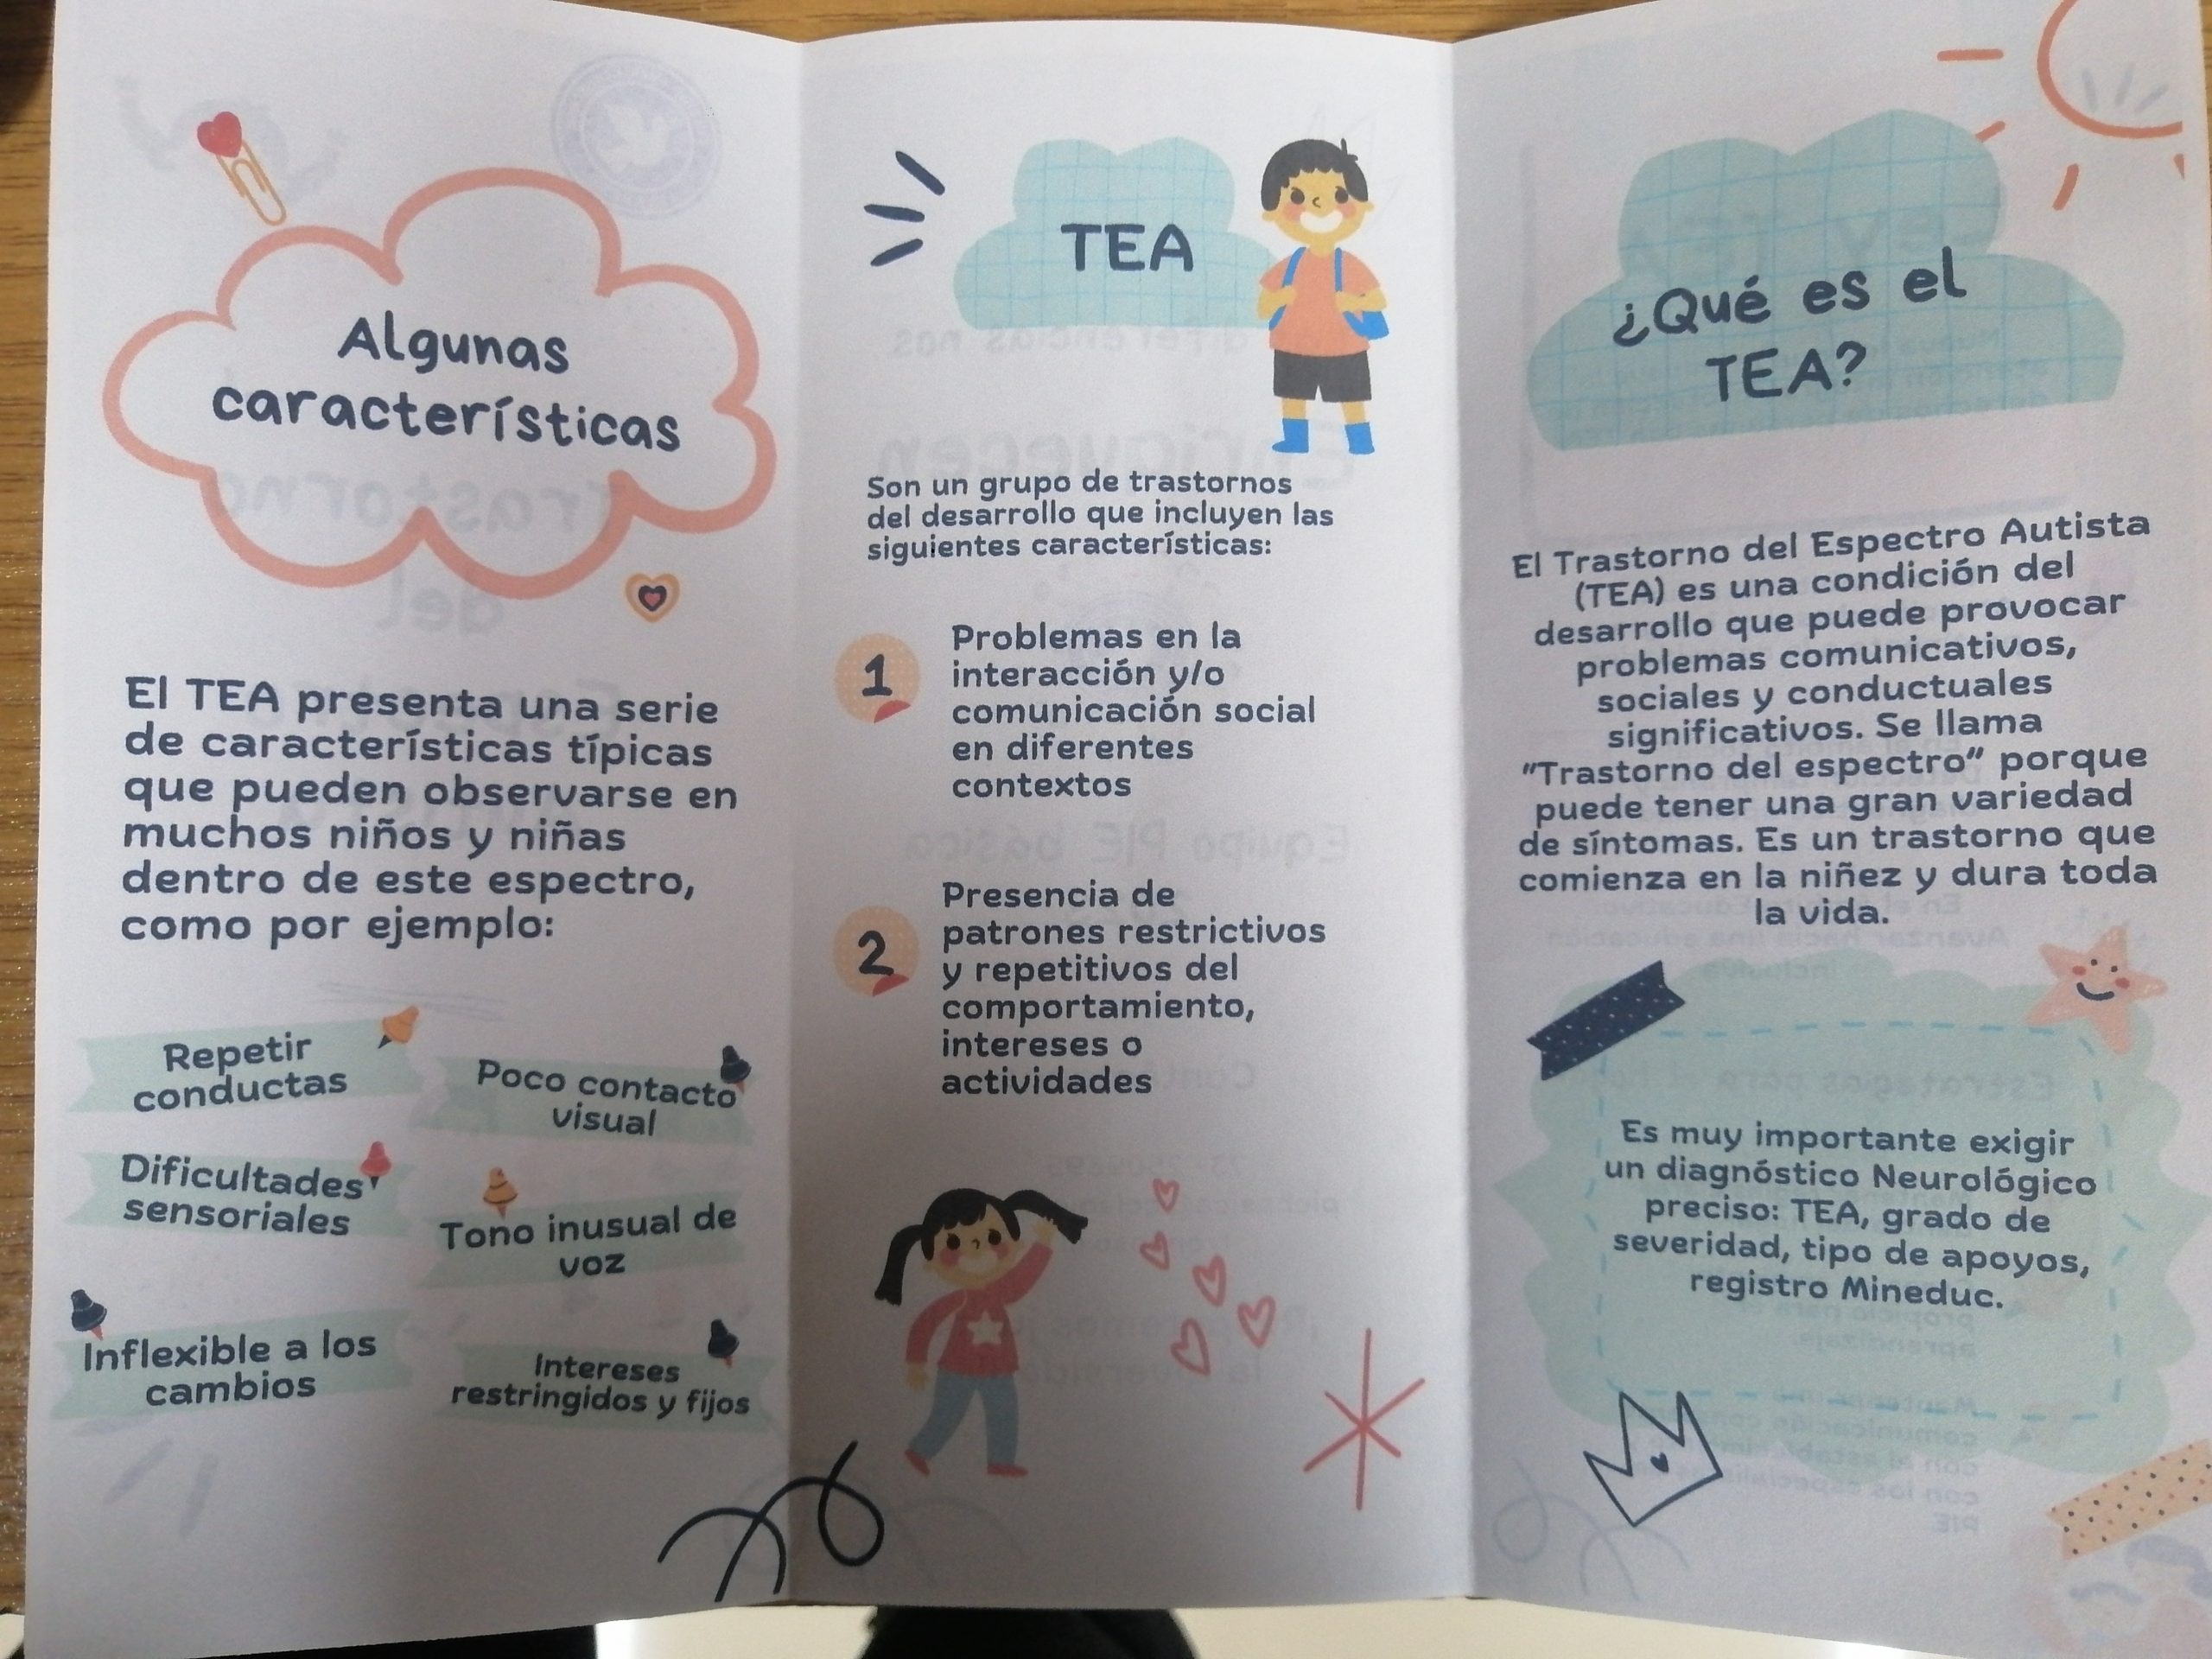 Algunas
características
El TEA presenta una serie
de características típicas
que pueden observarse en
muchos niños y niñas
dentro de este espectro,
como por ejemplo:
Repetir
conductas
Poco contacto
visual
Dificultades
sensoriales
Tono inusual de
voz
Inflexible a los
cambios
Intereses
restringidos y fijos
TEA
Son un grupo de trastornos
del desarrollo que incluyen las
siguientes características:
1
Problemas en la
interacción y/o
comunicación social
en diferentes
contextos
2
Presencia de
patrones restrictivos
y repetitivos del
comportamiento,
intereses o
actividades
¿Qué es el
TEA?
El Trastorno del Espectro Autista
(TEA) es una condición del
desarrollo que puede provocar
problemas comunicativos,
sociales y conductuales
significativos. Se llama
"Trastorno del espectro" porque
puede tener una gran variedad
de síntomas. Es un trastorno que
comienza en la niñez y dura toda
la vida.
Es muy importante exigir
un diagnóstico Neurológico
preciso: TEA, grado de
severidad, tipo de apoyos,
registro Mineduc.